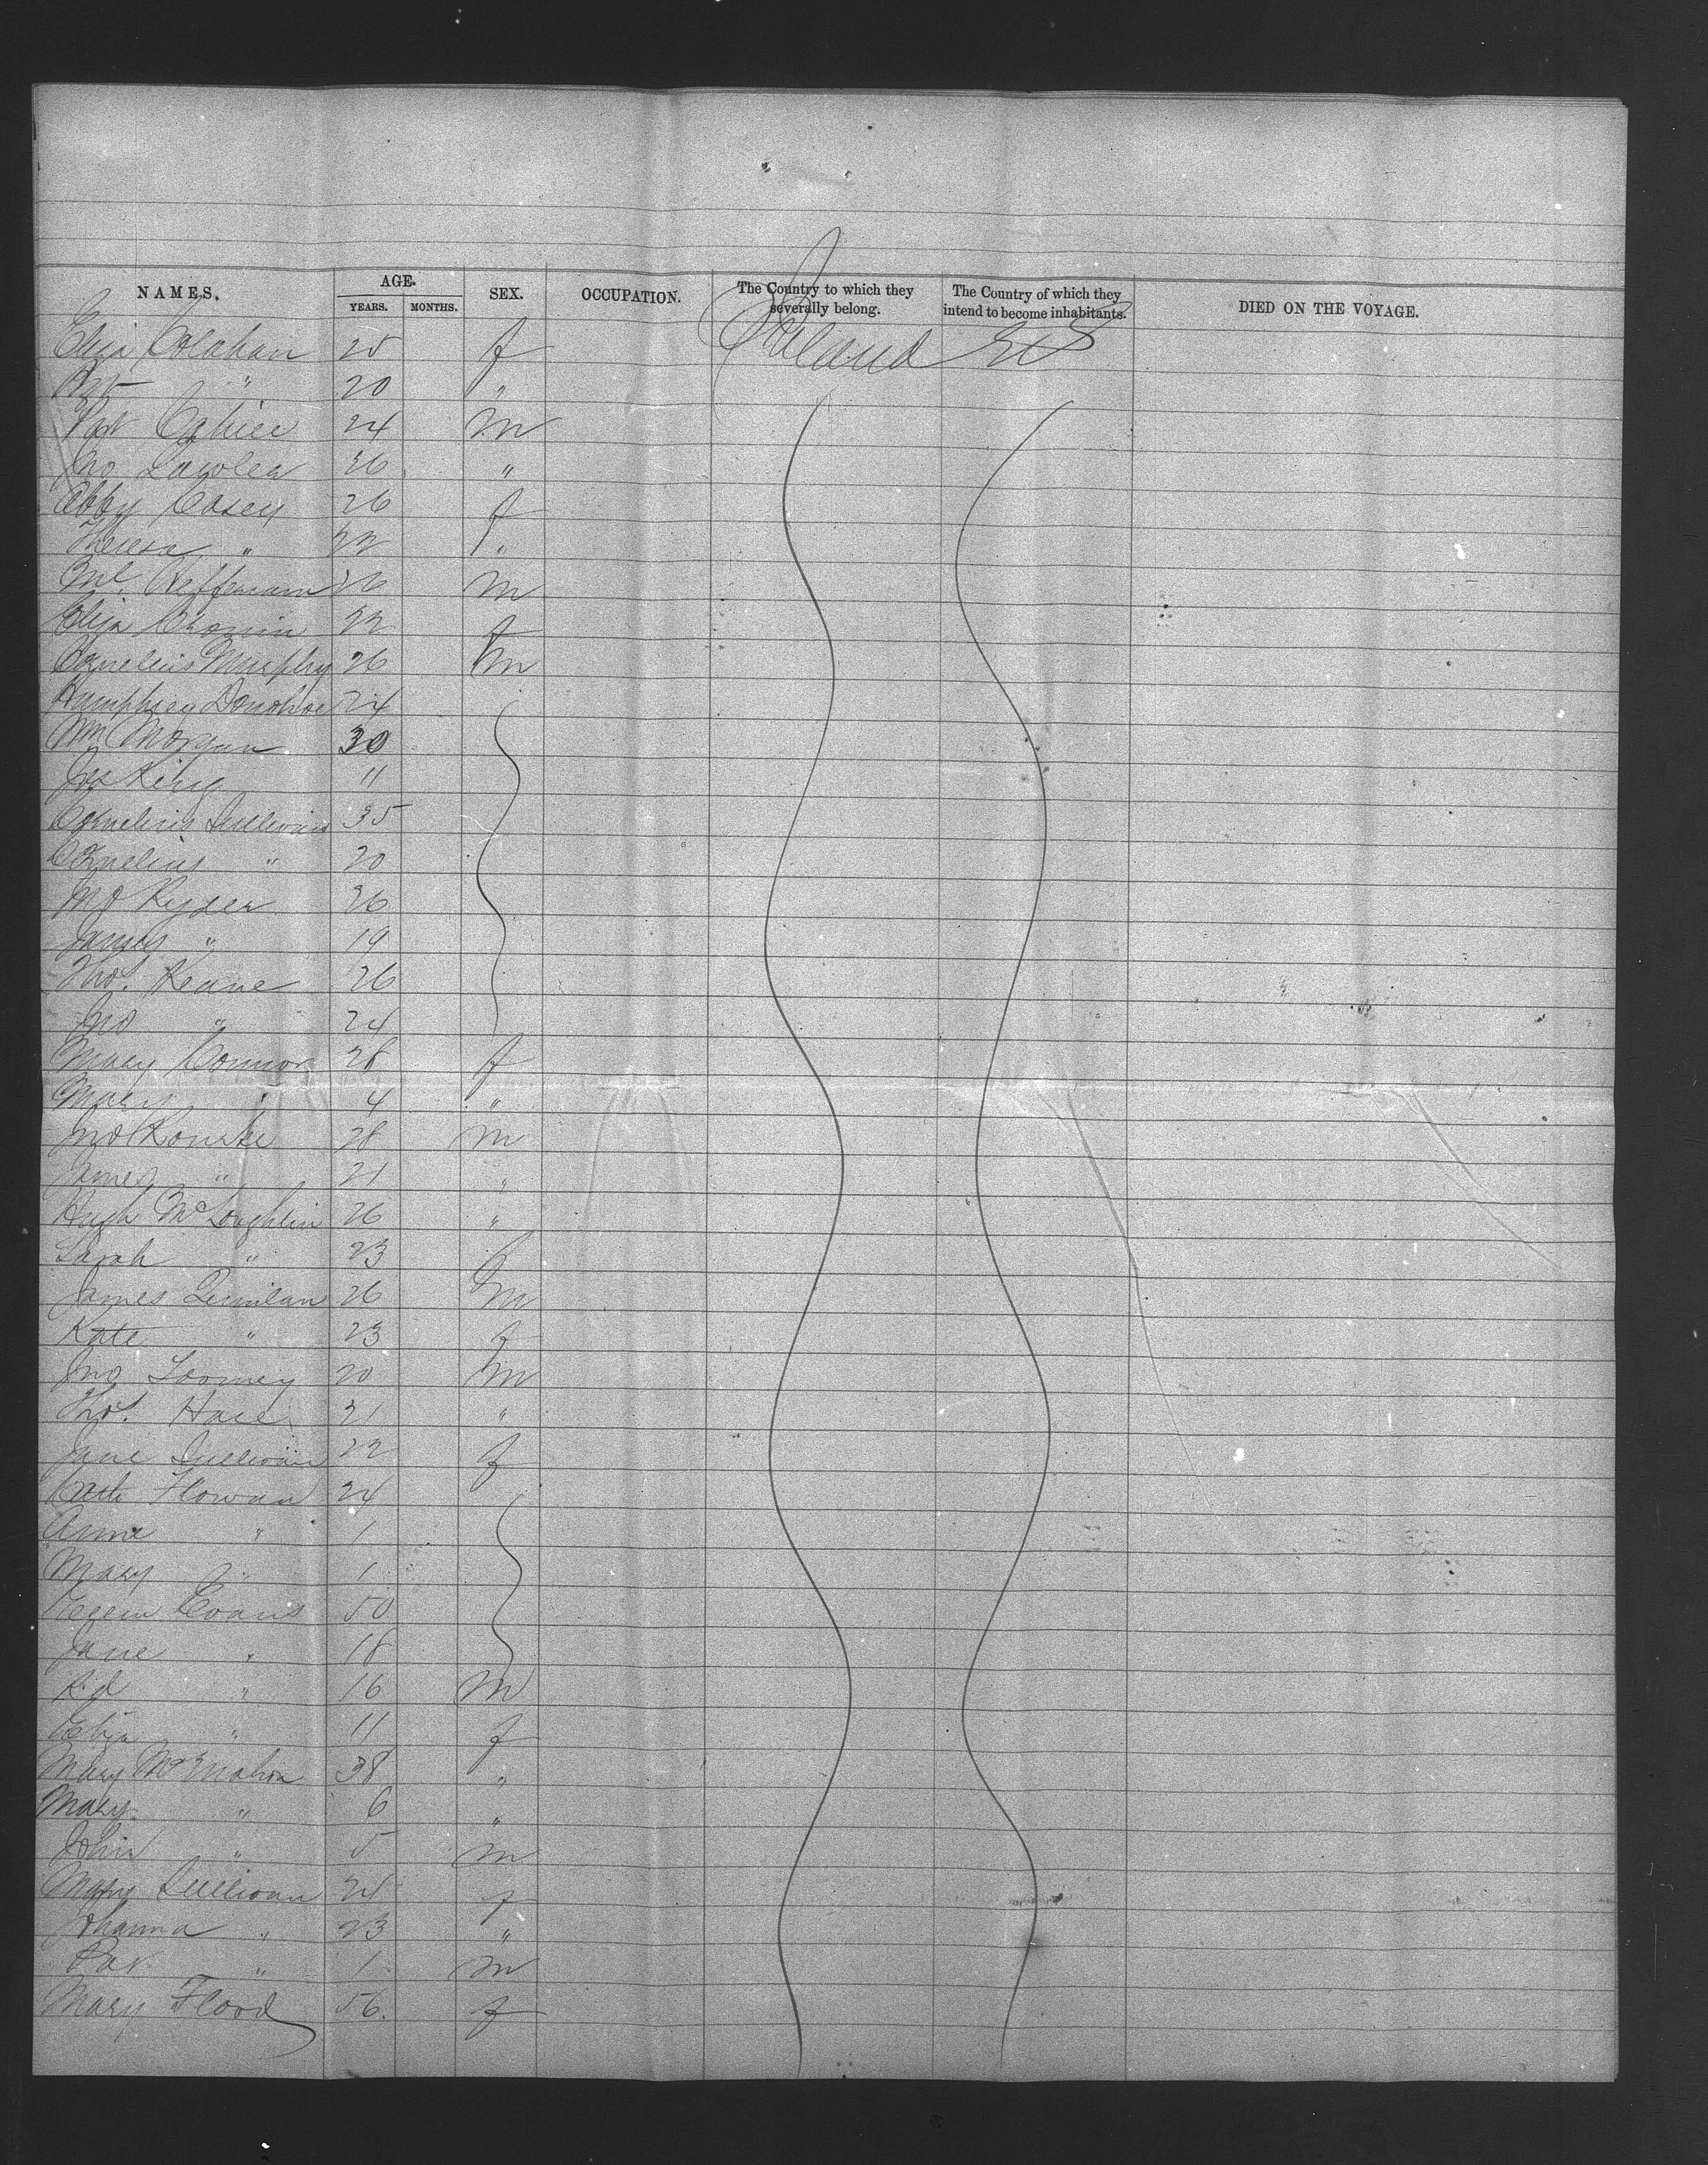 NAMES. AGE. SEX. OCCUPATION. The Country to which they severally belong. The Country of which they intend to become inhabitants. DIED ON THE VOYAGE.
YEARS. MONTHS.
Eliza Colahan 25 f Ireland US
" 20 "
Pat 24 m
Jno Lawler 26 "
Abby Casey 26 f
Theresa " 22 "
Ml. Heffernan 26 m
Eliza 22 f
Cornelius Murphy 26 m
Humphrey Donohoe 24
Wm Morgan 30
Jas King 11
Cornelius Sullivan 35
Cornelius " 20
Jno Ryder 26
James " 19
Thos. Keane 26
Jno " 24
Mary Connor 28 f
Mary " 4 "
Jno Rourke 28 m
James " 21 "
Hugh McLoughlin 26 "
Sarah " 23 f
James Quinlan 26 m
Kate " 23 f
Jno Toomey 20 m
Thos. Hace 21 "
Jane Sullivan 22 f
Cath 24
Anne " 1
Mary " 1
Evans 50
Jane " 18
Rd " 16 m
Eliza " 11 f
Mary McMahon 38 "
Mary " 6 "
John " 5 m
Mary Sullivan 24 f
Johanna " 23 "
Pat " 1 m
Mary Flood 56. f